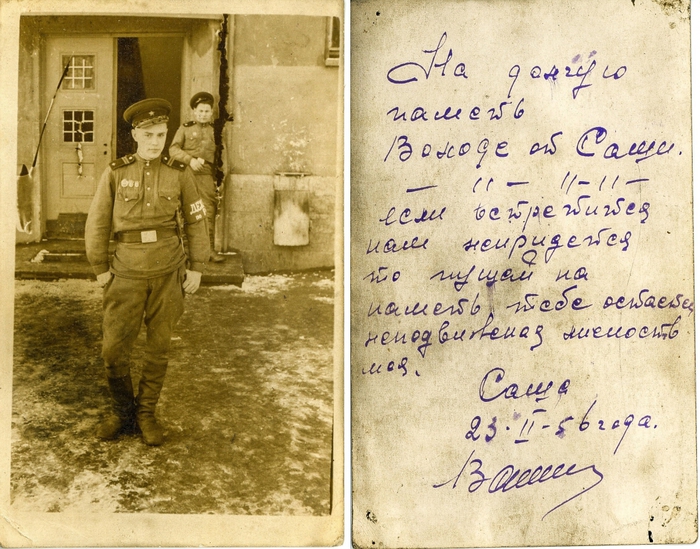 На долгую
память
Володе от Саши.
— 11 — 11-11 —
если встретится
нам непридется
то пущай на
память тебе остается
неподвижная личность
моя.
Саша
23-II-56 года.